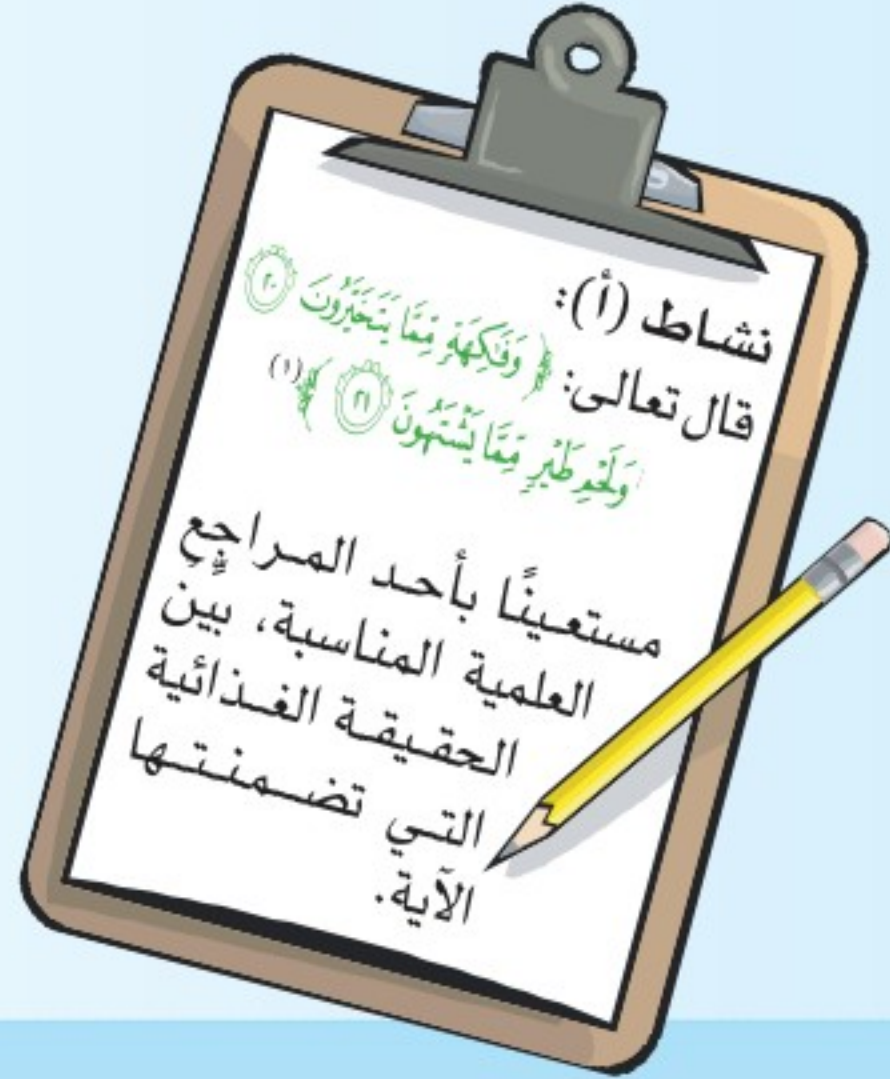 نشاط (أ):
قال تعالى: ﴿ وَفَٰكِهَةٖ مِّمَّا يَتَخَيَّرُونَ ٢٠
وَلَحۡمِ طَيۡرٖ مِّمَّا يَشۡتَهُونَ ٢١ ﴾(١)
مستعينًا بأحد المراجِعِ
العلمية المناسبة، بيِّن
الحقيقة الغذائية
التي تضمنتها
الآية.